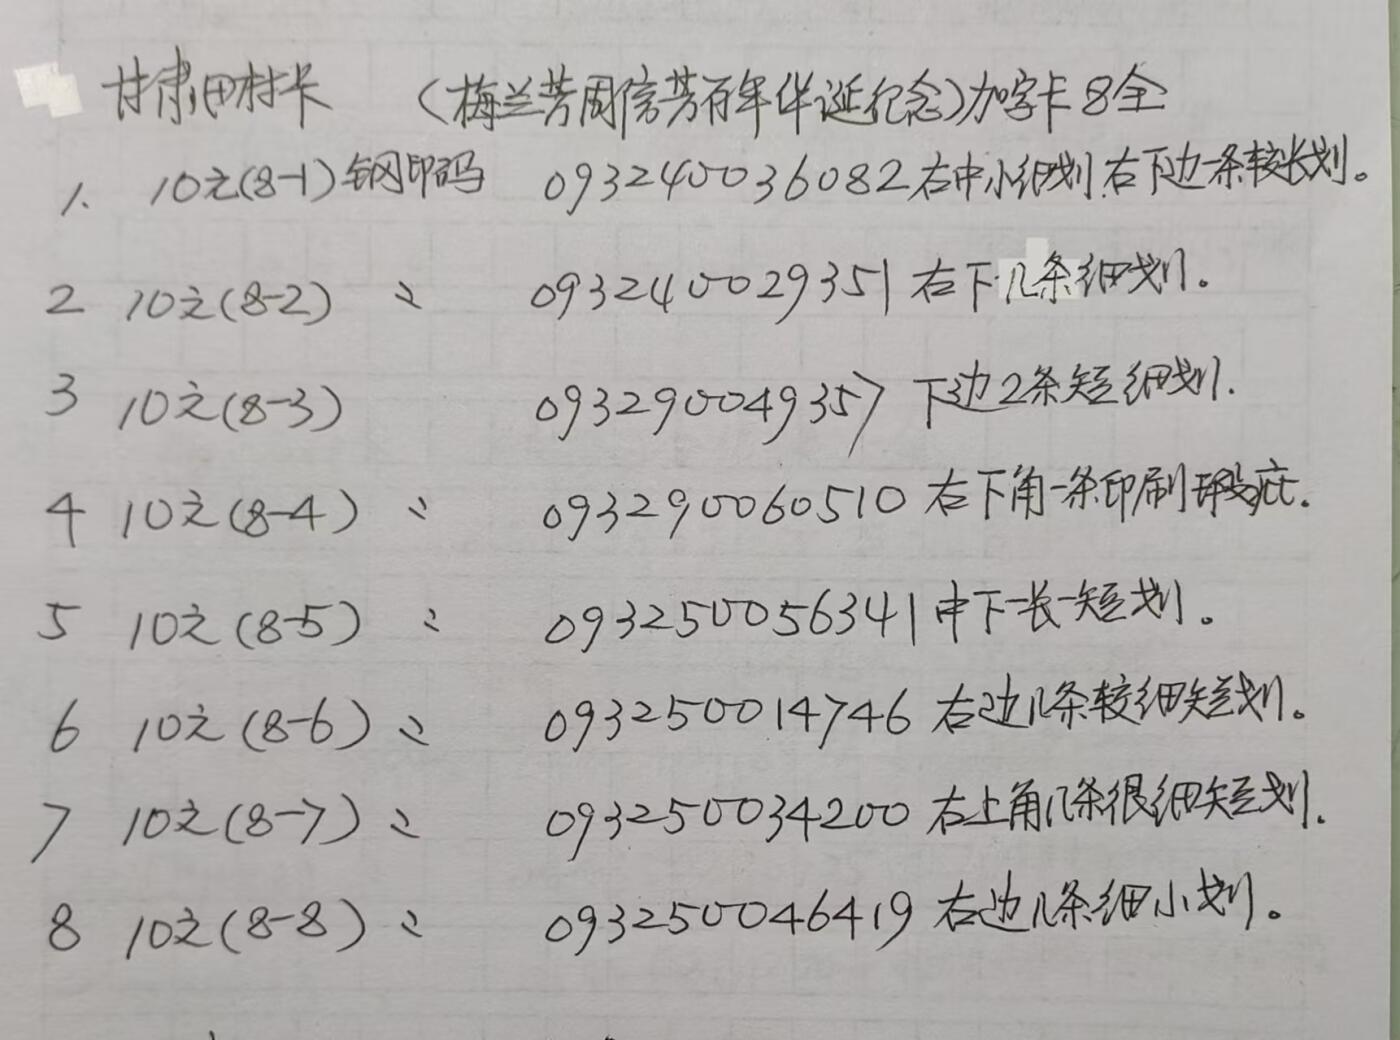 甘肃田村卡 (梅兰芳周信芳百年伴诞纪念)加字卡8全
1. 10元(8-1)钢印码 0932400036082右中小细划右下边一条较长划。
2 10元(8-2) 〃 0932400029351右下几条细划。
3 10元(8-3) 0932900049357下边2条短细划.
4 10元(8-4) 〃 0932900060510右下角一条印刷瑕疵.
5 10元(8-5) 〃 0932500056341中下一长一短划。
6 10元(8-6) 〃 0932500014746右边几条较细短划。
7 10元(8-7) 〃 0932500034200右上角几条很细短划.
8 10元(8-8) 〃 0932500046419右边几条细小划。